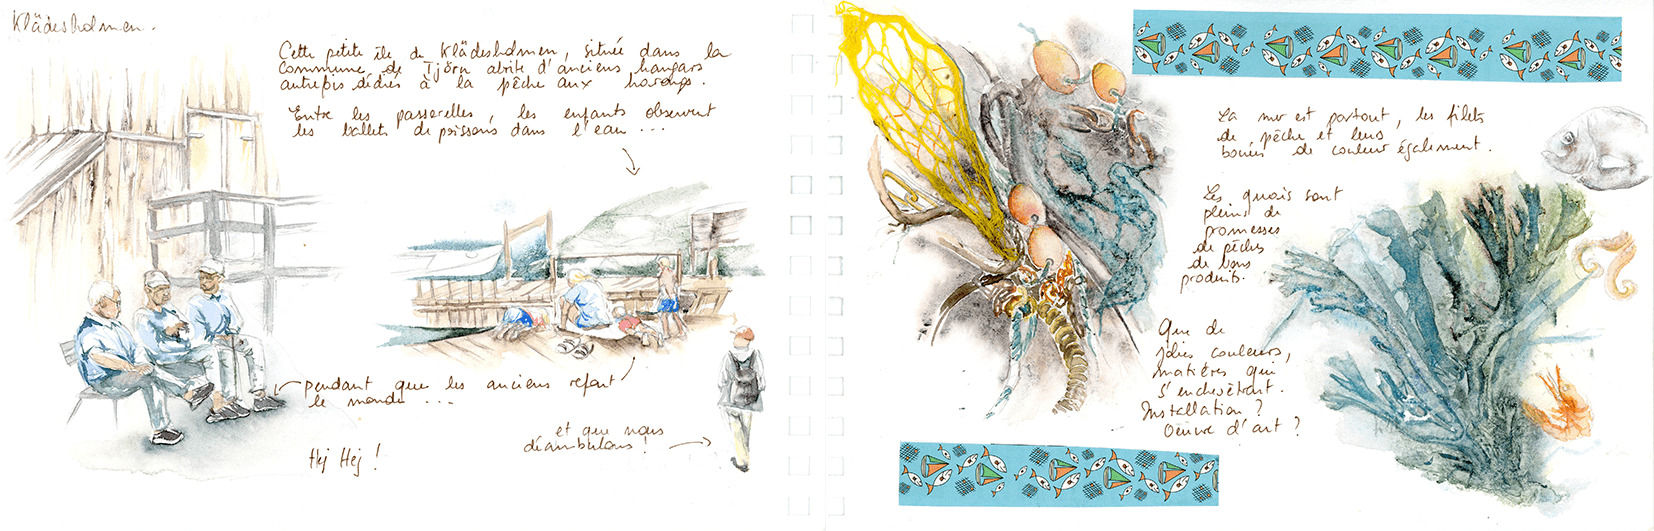 Klädesholmen.
Cette petite île de Klädesholmen, située dans la
Commune de Tjörn abrite d'anciens hangars
autrefois dédiés à la pêche aux harengs.
Entre les passerelles, les enfants observent
les ballets de poissons dans l'eau ...
pendant que les anciens refont
le monde ...
et que nous
déambulons !
Hej Hej !
La mer est partout, les filets
de pêche et leurs
bouées de couleur également.
Les quais sont
pleins de
promesses
de pêches
de bons
produits.
Que de
jolies couleurs,
matières qui
s'enchevêtrent.
Installation ?
Oeuvre d'art ?